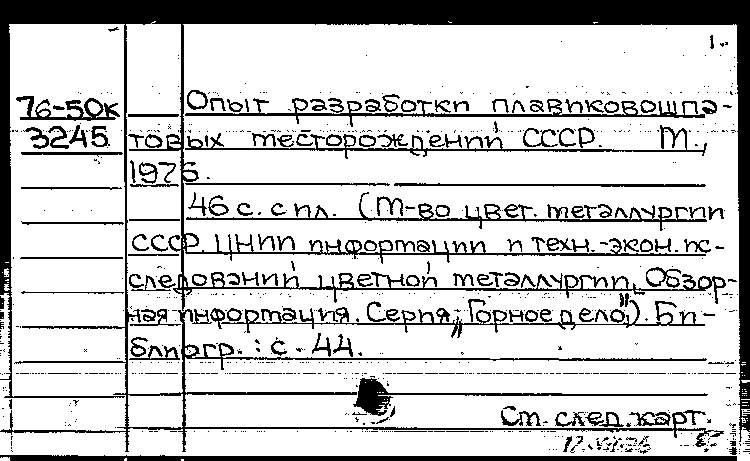 1.
76-50к Опыт разработки плавиковошпа-
3245 товых месторождений СССР. М.,
1975.
46 с. с ил. (М-во цвет. металлургии
СССР. ЦНИИ информации и техн.-экон. ис-
следований цветной металлургии. Обзор-
ная информация. Серия „Горное дело"). Би-
блиогр.: с. 44.
См. след. карт.